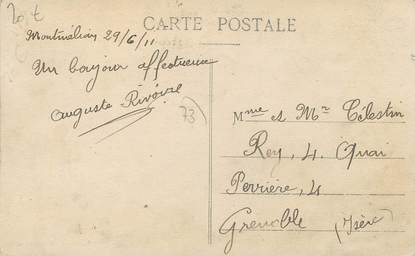 20 t
CARTE POSTALE
Montmélian 29/6/11
Un bonjour affectueux
Auguste
73
Mme et Mr Célestin
Rey, 4. Quai
Perrière, 4
Grenoble (Isère)